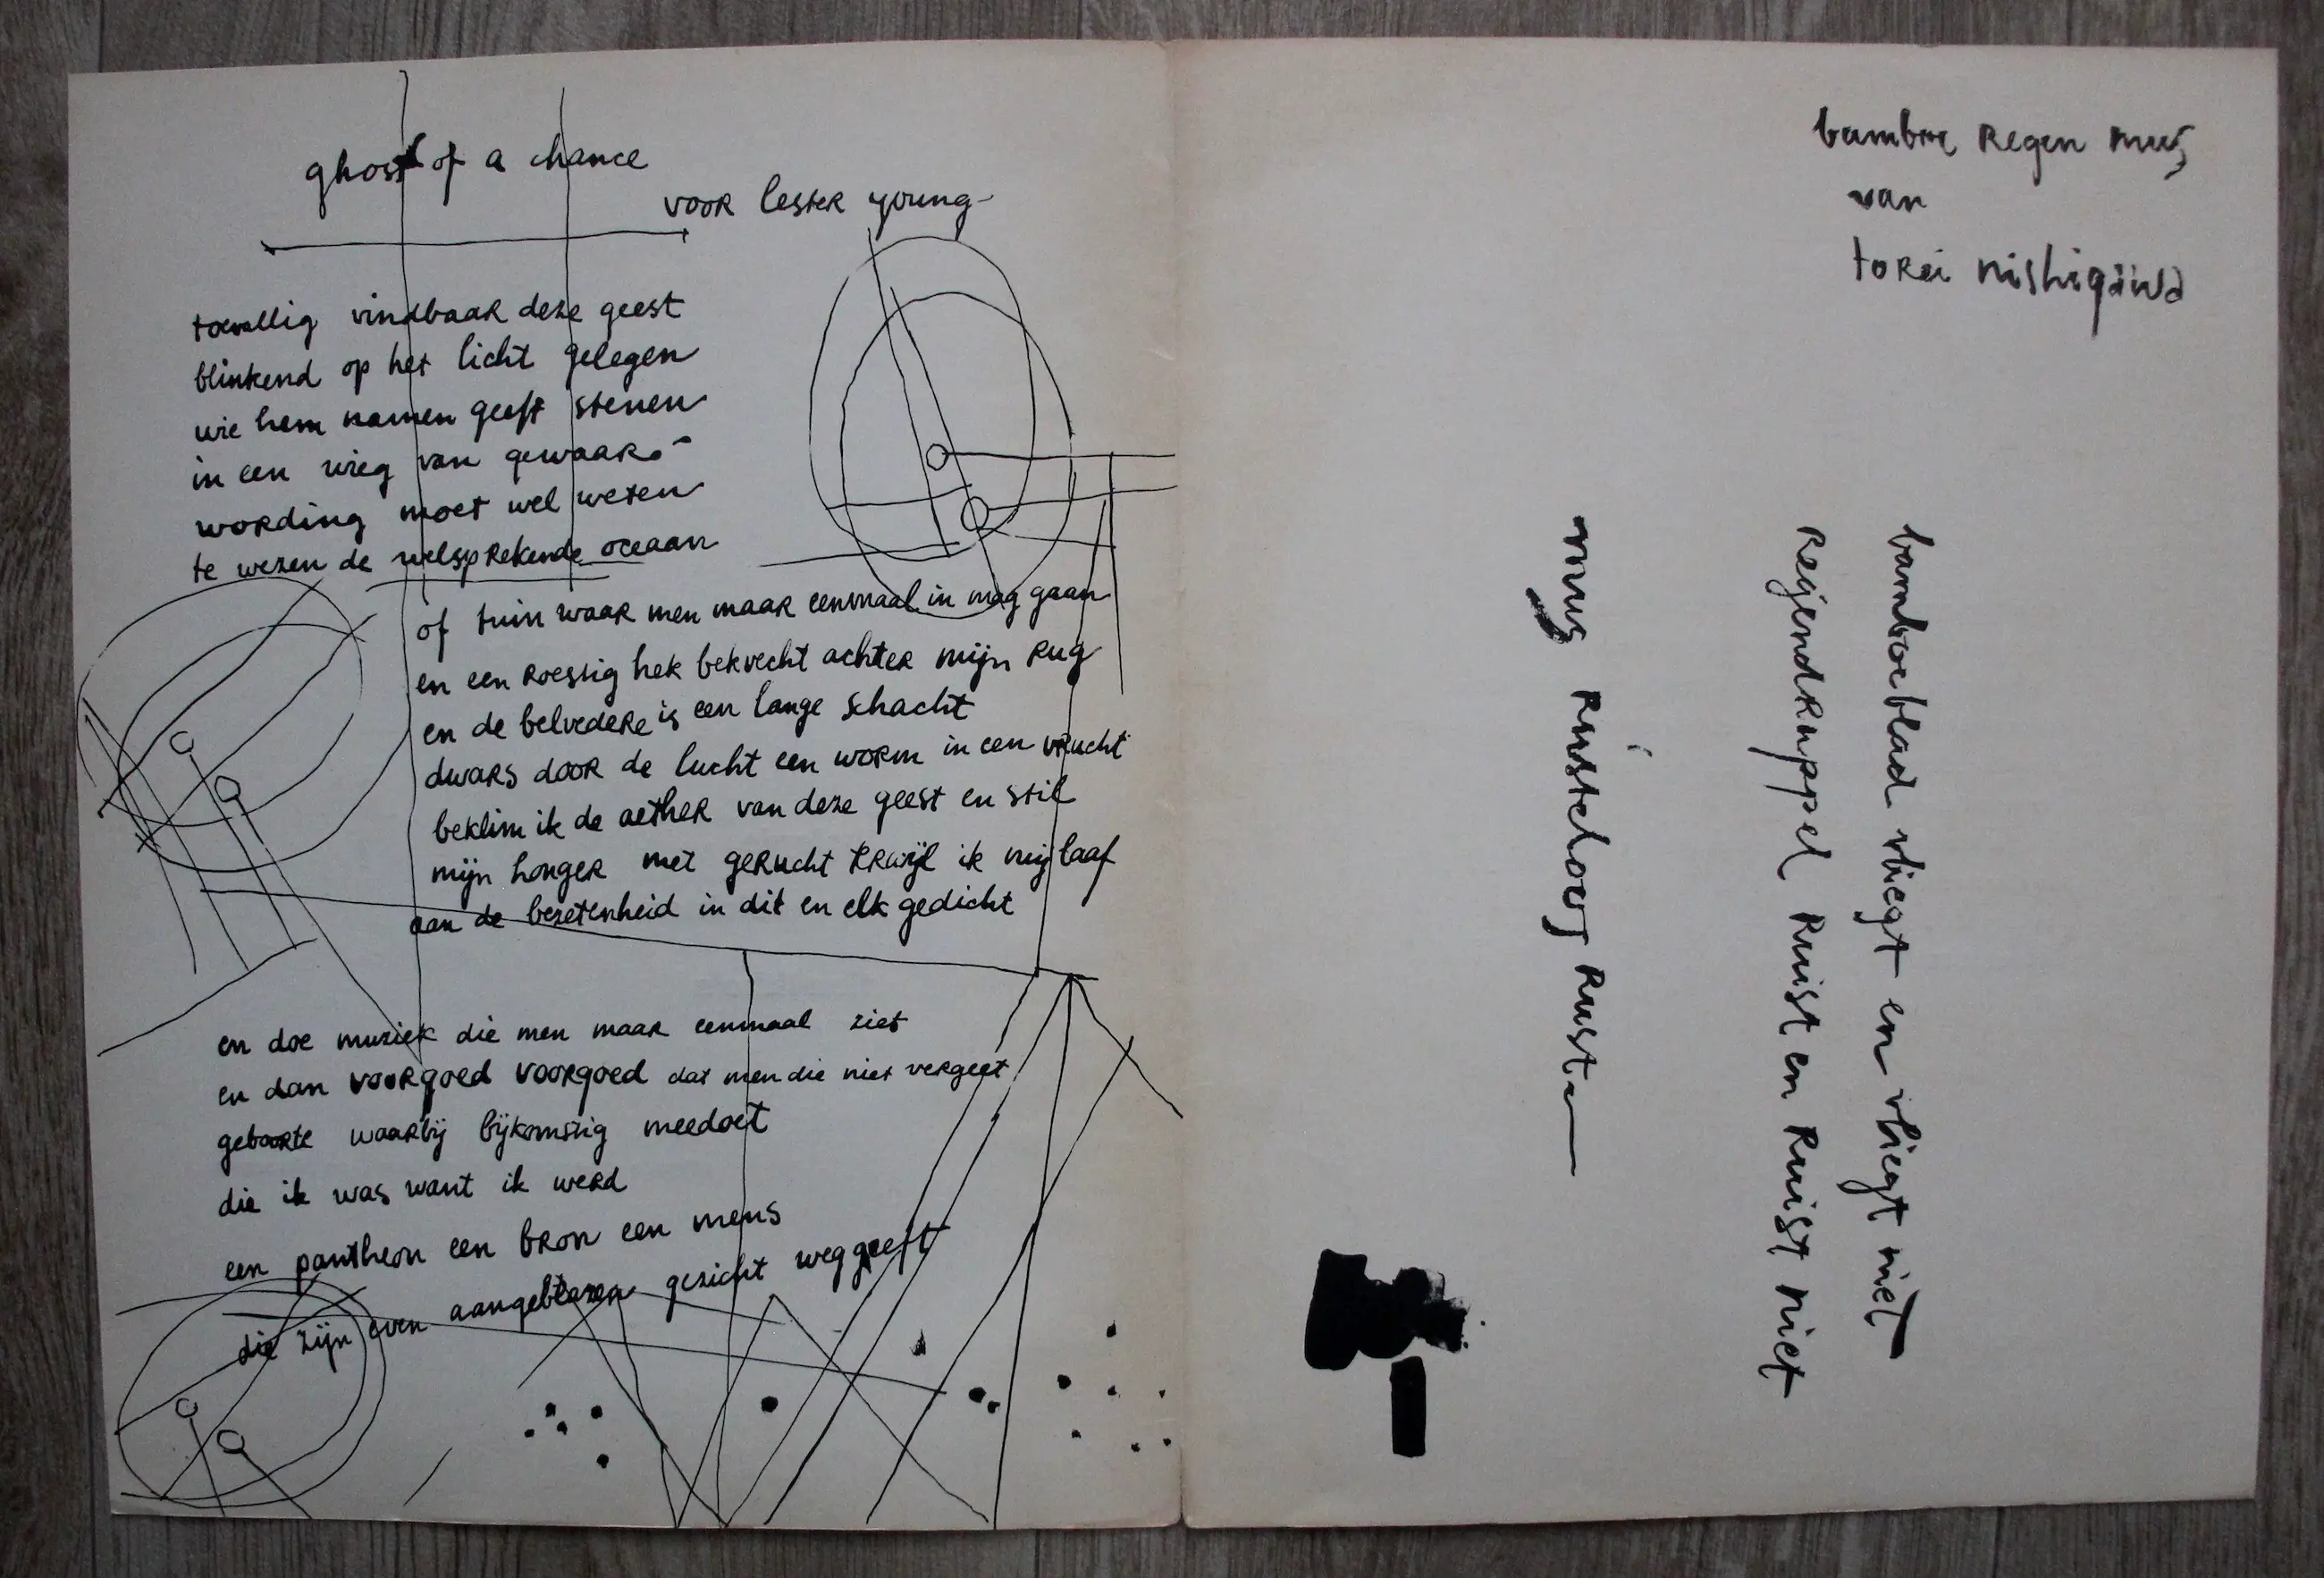 ghost of a chance
voor lester young
toevallig vindbaar deze geest
blinkend op het licht gelegen
wie hem namen geeft stenen
in een wieg van gewaar-
wording moet wel weten
te wezen de welsprekende oceaan
of tuin waar men maar eenmaal in mag gaan
en een roestig hek bekvecht achter mijn rug
en de belvedere is een lange schacht
dwars door de lucht een worm in een vrucht
beklim ik de aether van deze geest en stil
mijn honger met gerucht terwijl ik mij laaf
aan de bezetenheid in dit en elk gedicht
en doe muziek die men maar eenmaal ziet
en dan voorgoed voorgoed dat men die niet vergeet
geboorte waarbij bijkomstig meedoet
die ik was want ik werd
een pantheon een bron een mens
die zijn even aangeblazen gezicht weggeeft
bamboe regen mus
van
torei nishigawa
bamboeblad vliegt en vliegt niet
regendruppel ruist en ruist niet
mus rusteloos rust